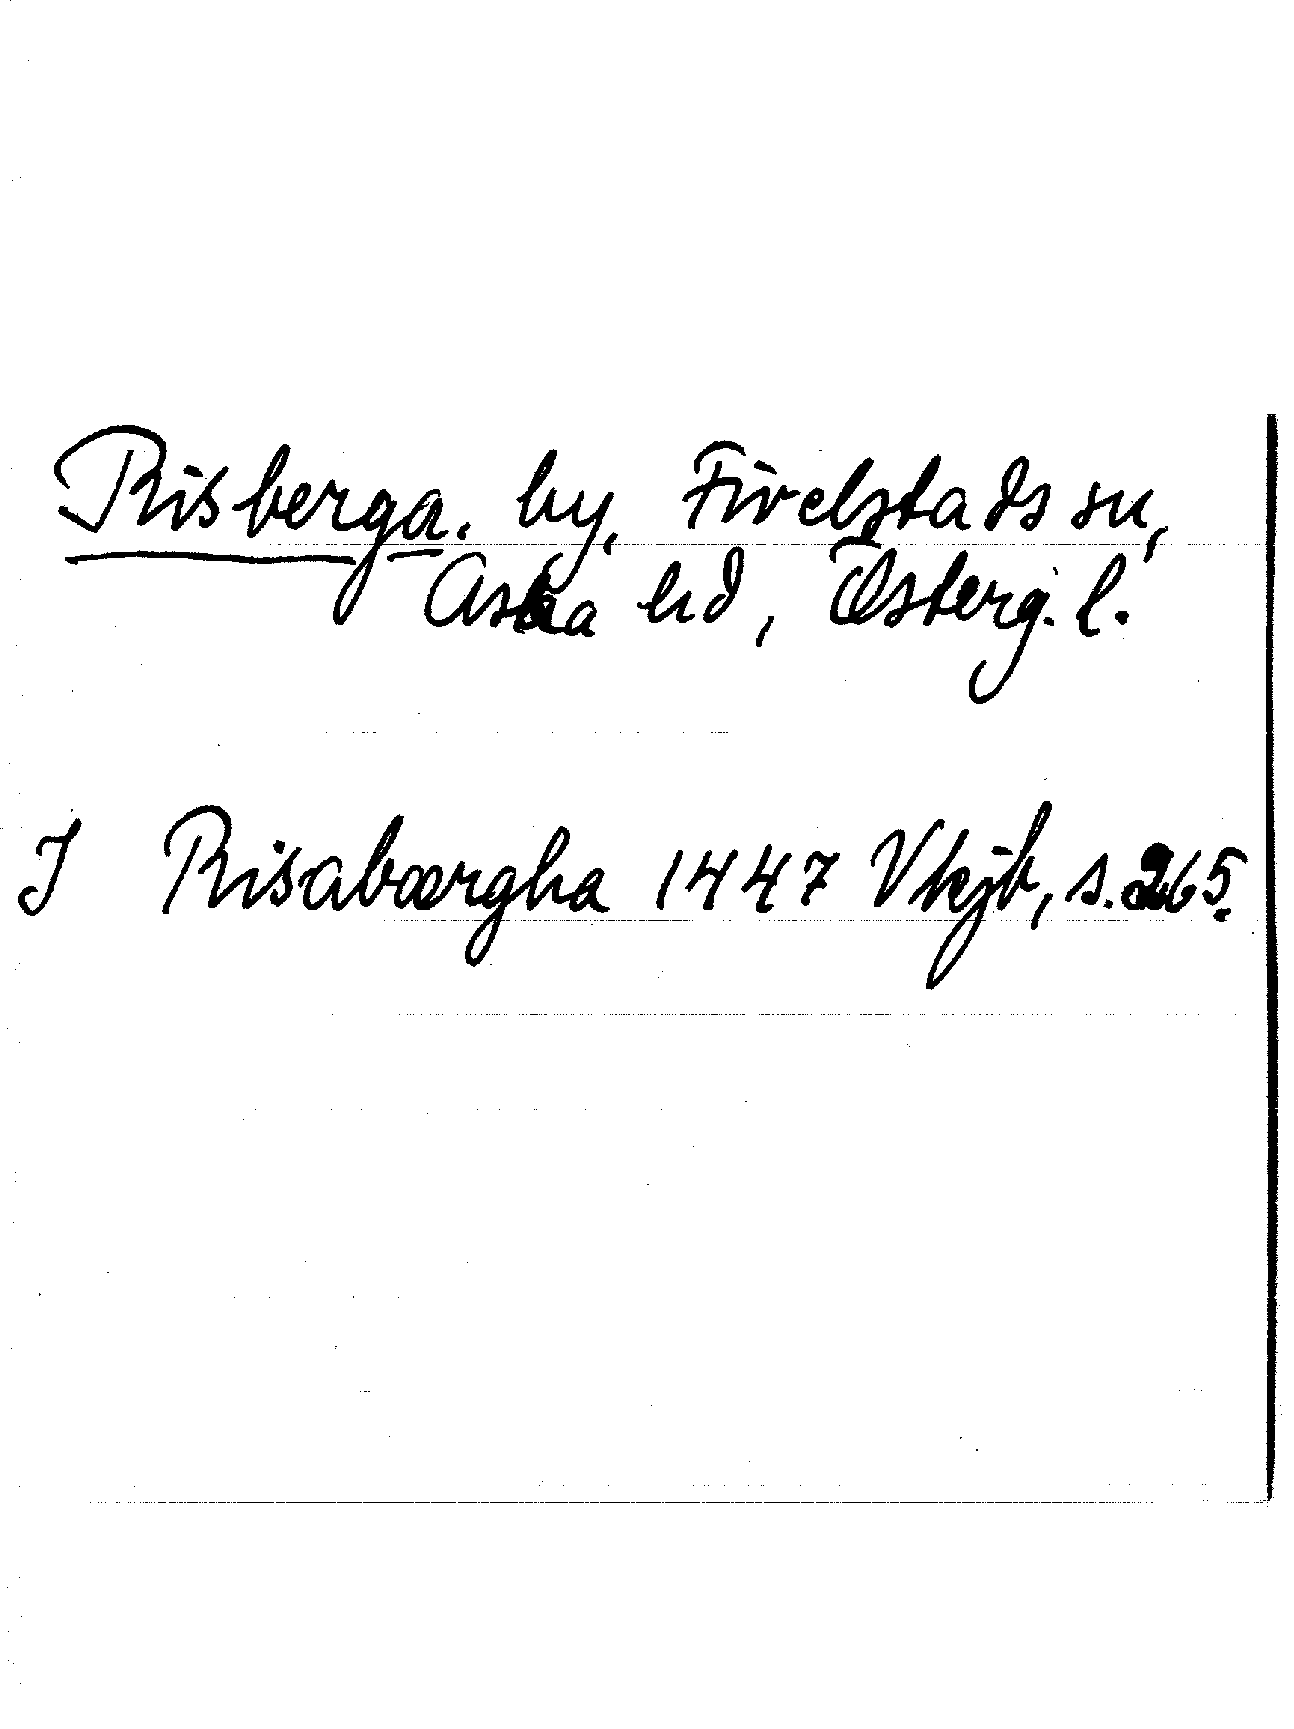 Risberga. by, Fivelstads sn,
Aska hd, Österg. l.
J Risabærgha 1447 Vkjb, s. 265.